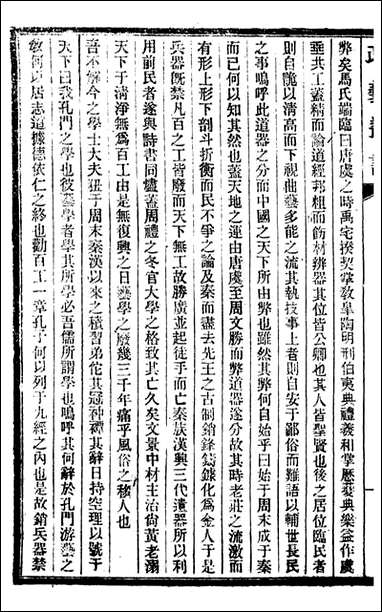 弊矣馬氏端臨曰唐虞之時禹宅揆契掌教皋陶明刑伯夷典禮羲和掌歷夔典樂益作虞
垂共工蓋精而論道經邦粗而飭材辨器其位皆公卿也其人皆聖賢也後之居位臨民者
則自詭以清高而下視曲藝多能之流其執技事上者則自安于鄙俗而難語以輔世長民
之事嗚呼此道器之分而中國之天下所由弊也雖然其弊何自始乎曰始于周末成于秦
而已何以知其然也蓋天地之運由唐虞至周文勝而弊道器遂分故其時老莊之流激而
有形上形下剖斗折衡而民不爭之論及秦而盡去先王之古制銷鋒鑄鐻化為金人于是
兵器既禁凡百之工皆廢而天下無工故勝廣並起徒手而亡秦族漢興三代遺器所以利
用前民者遂與詩書同燼蓋周禮之冬官大學之格致其亡久矣文景中材主治尚黃老溺
天下于清淨無為百工由是無復興之日藝學之廢幾三千年痛乎風俗之移人也
吾不解今之學士大夫狃于周末秦漢以來之積習弟佗其冠神禫其辭日持空理以號于
天下曰我孔門之學也彼藝學者學其所學必吾儒所謂學也嗚呼其何辭於孔門游藝之
教何以居志道據德依仁之終也勸百工一章孔子何以列于九經之內也是故銷兵器禁